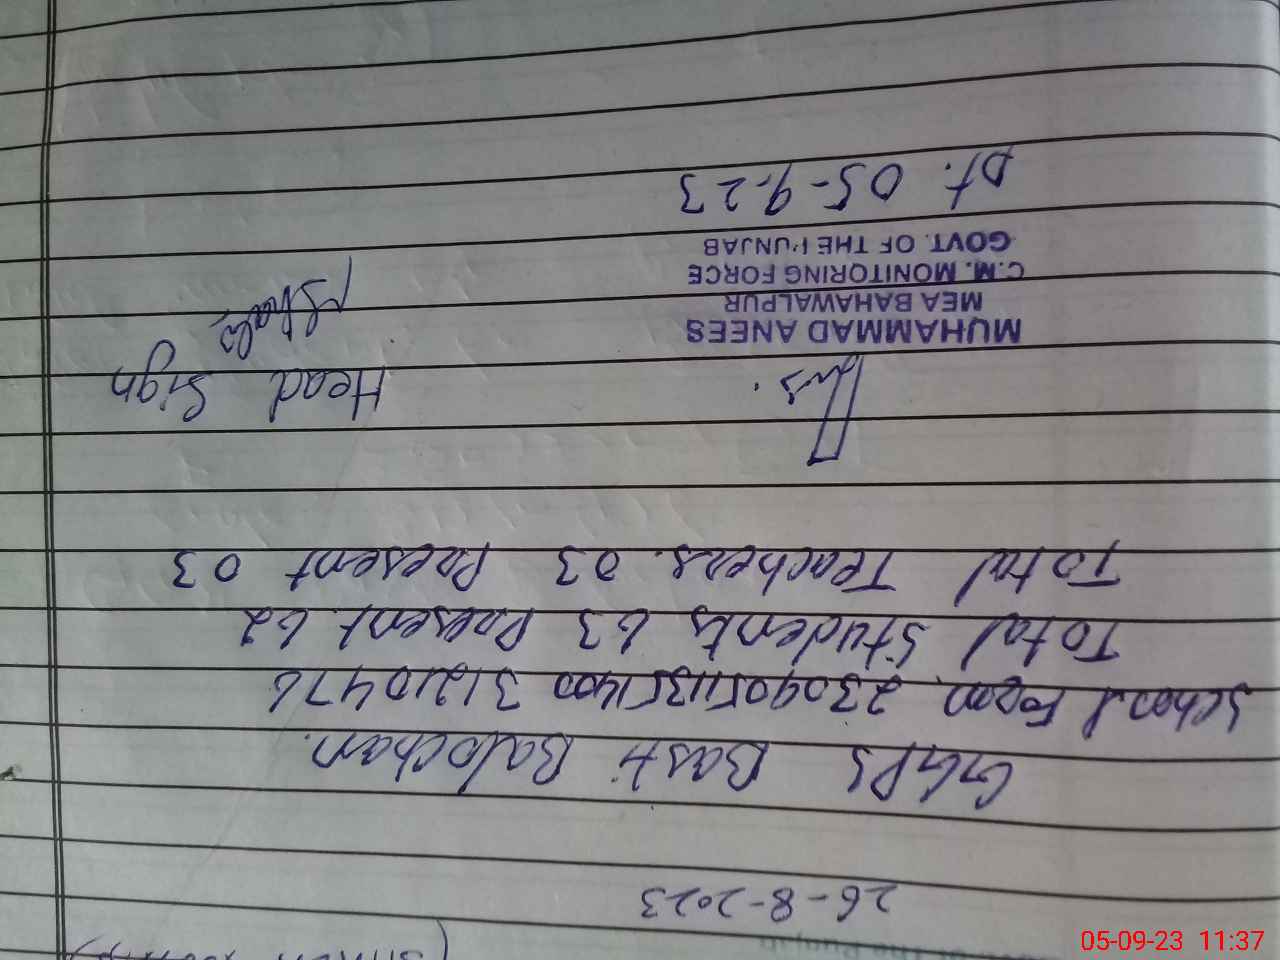 26-8-2023
GGPS Basti Balochan.
School Form 23090511351400 31210476
Total Students 63 Present 62
Total Teachers. 03 Present 03
Head Sign
MUHAMMAD ANEES
MEA BAHAWALPUR
C.M. MONITORING FORCE
GOVT. OF THE PUNJAB
Dt. 05-9-23
05-09-23 11:37